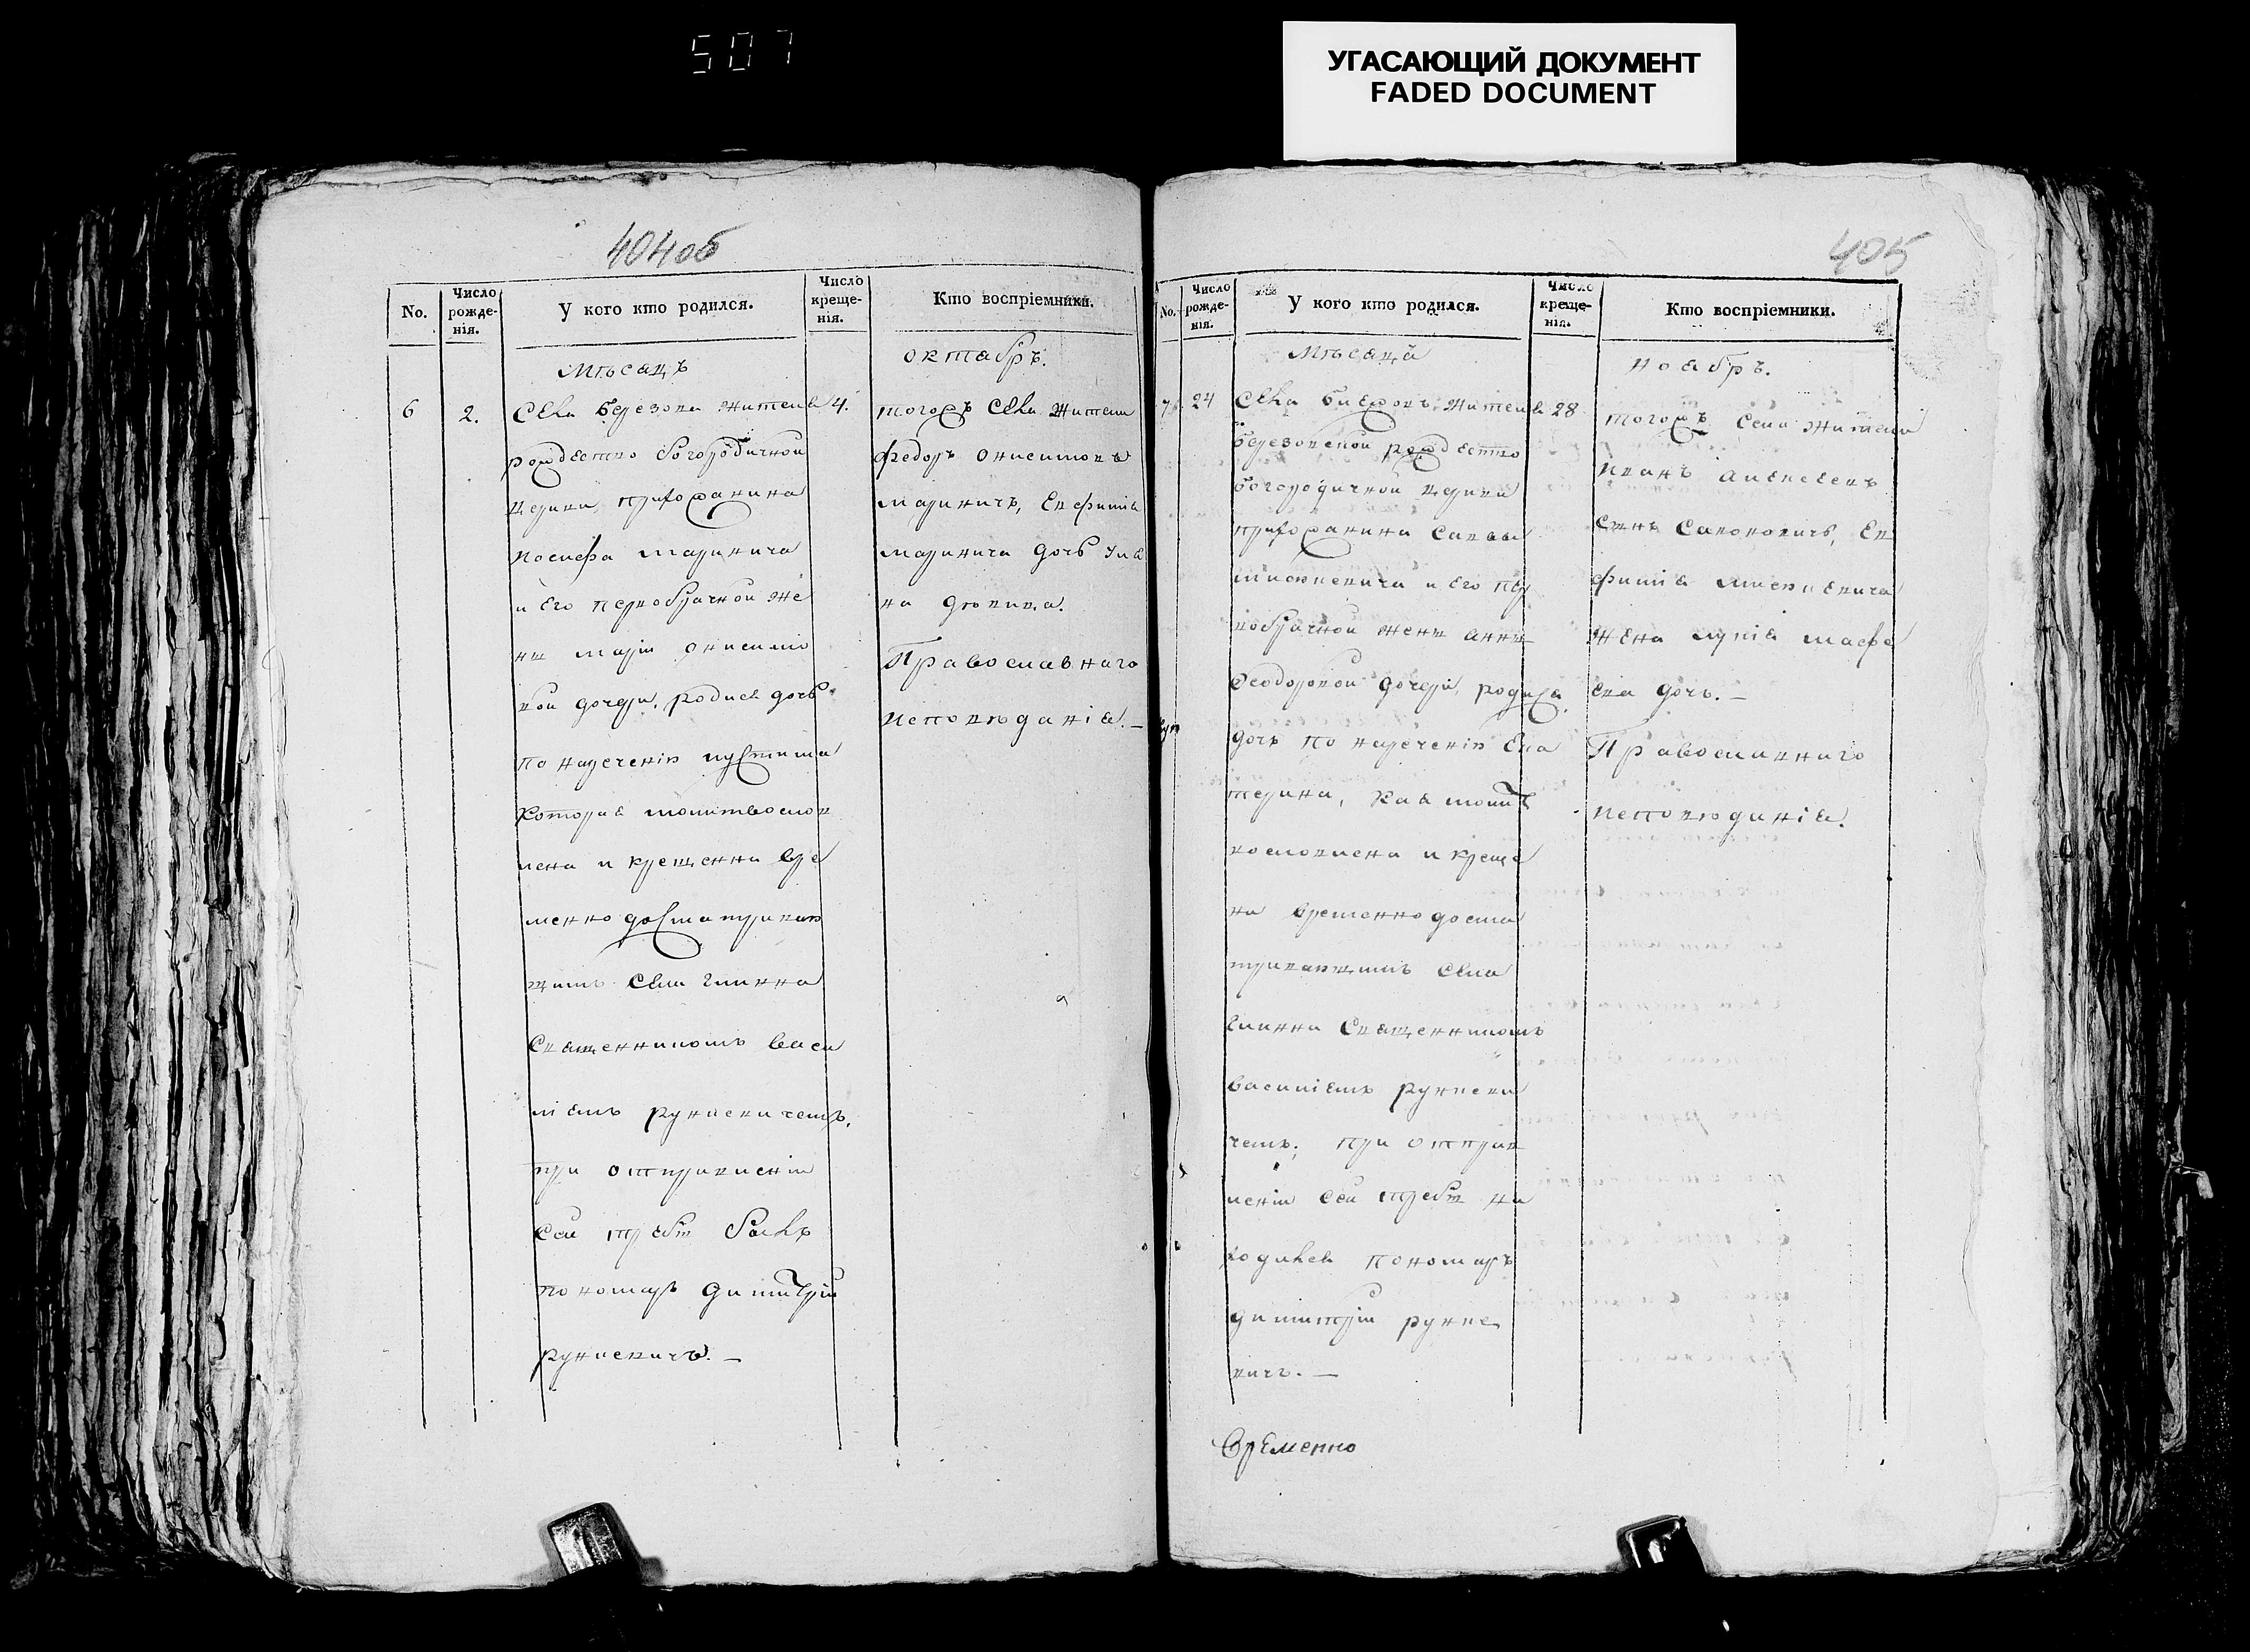 507
УГАСАЮЩИЙ ДОКУМЕНТ
FADED DOCUMENT
404об
No.
Число рожде-нія.
У кого кто родился.
Число креще-нія.
Кто воспріемники.
Мѣсяцъ
октябрь.
6
2.
Села Березова жителя
4.
рождество богородичной
церкви прихожанина
иосифа маринича
и его первобрачной же
нѣ маріи онисимо
вой дочери, родися дочь
по нареченію иустина
которая молитвослов
лена и крещенна вре
менно достатриваю
щимъ села глинна
Священникомъ васи
ліемъ рункевичемъ,
при отправленіи
сей требѣ былъ
пономарь димитрій
рункевичъ. —
тогожъ села жители
федоръ онисимовъ
мариничъ, Евфимія
маринича дочь улія
на
Православнаго
исповѣданія. —
405
No.
Число рожде-нія.
У кого кто родился.
Число креще-нія.
Кто воспріемники.
Мѣсяца
ноябрь.
7.
24
Села жителя
28
березовской рождество
богородичной церкви
прихожанина саввы
и его пер
вобрачной женѣ аннѣ
Феодоровой дочери, родися
дочь по нареченію Ека
терина, кая молит
вословлена и креще
на временно доста
тривающимъ села
глинна Священникомъ
василіемъ рункеви
чемъ; при отправ
леніи сей требѣ на
ходился пономарь
димитрій рунке
вичъ. —
тогожъ села жители
иванъ алексеевъ
сынъ Ев
фимія
жена лукія матфе
ева дочь. —
Православнаго
исповѣданія.
Временно